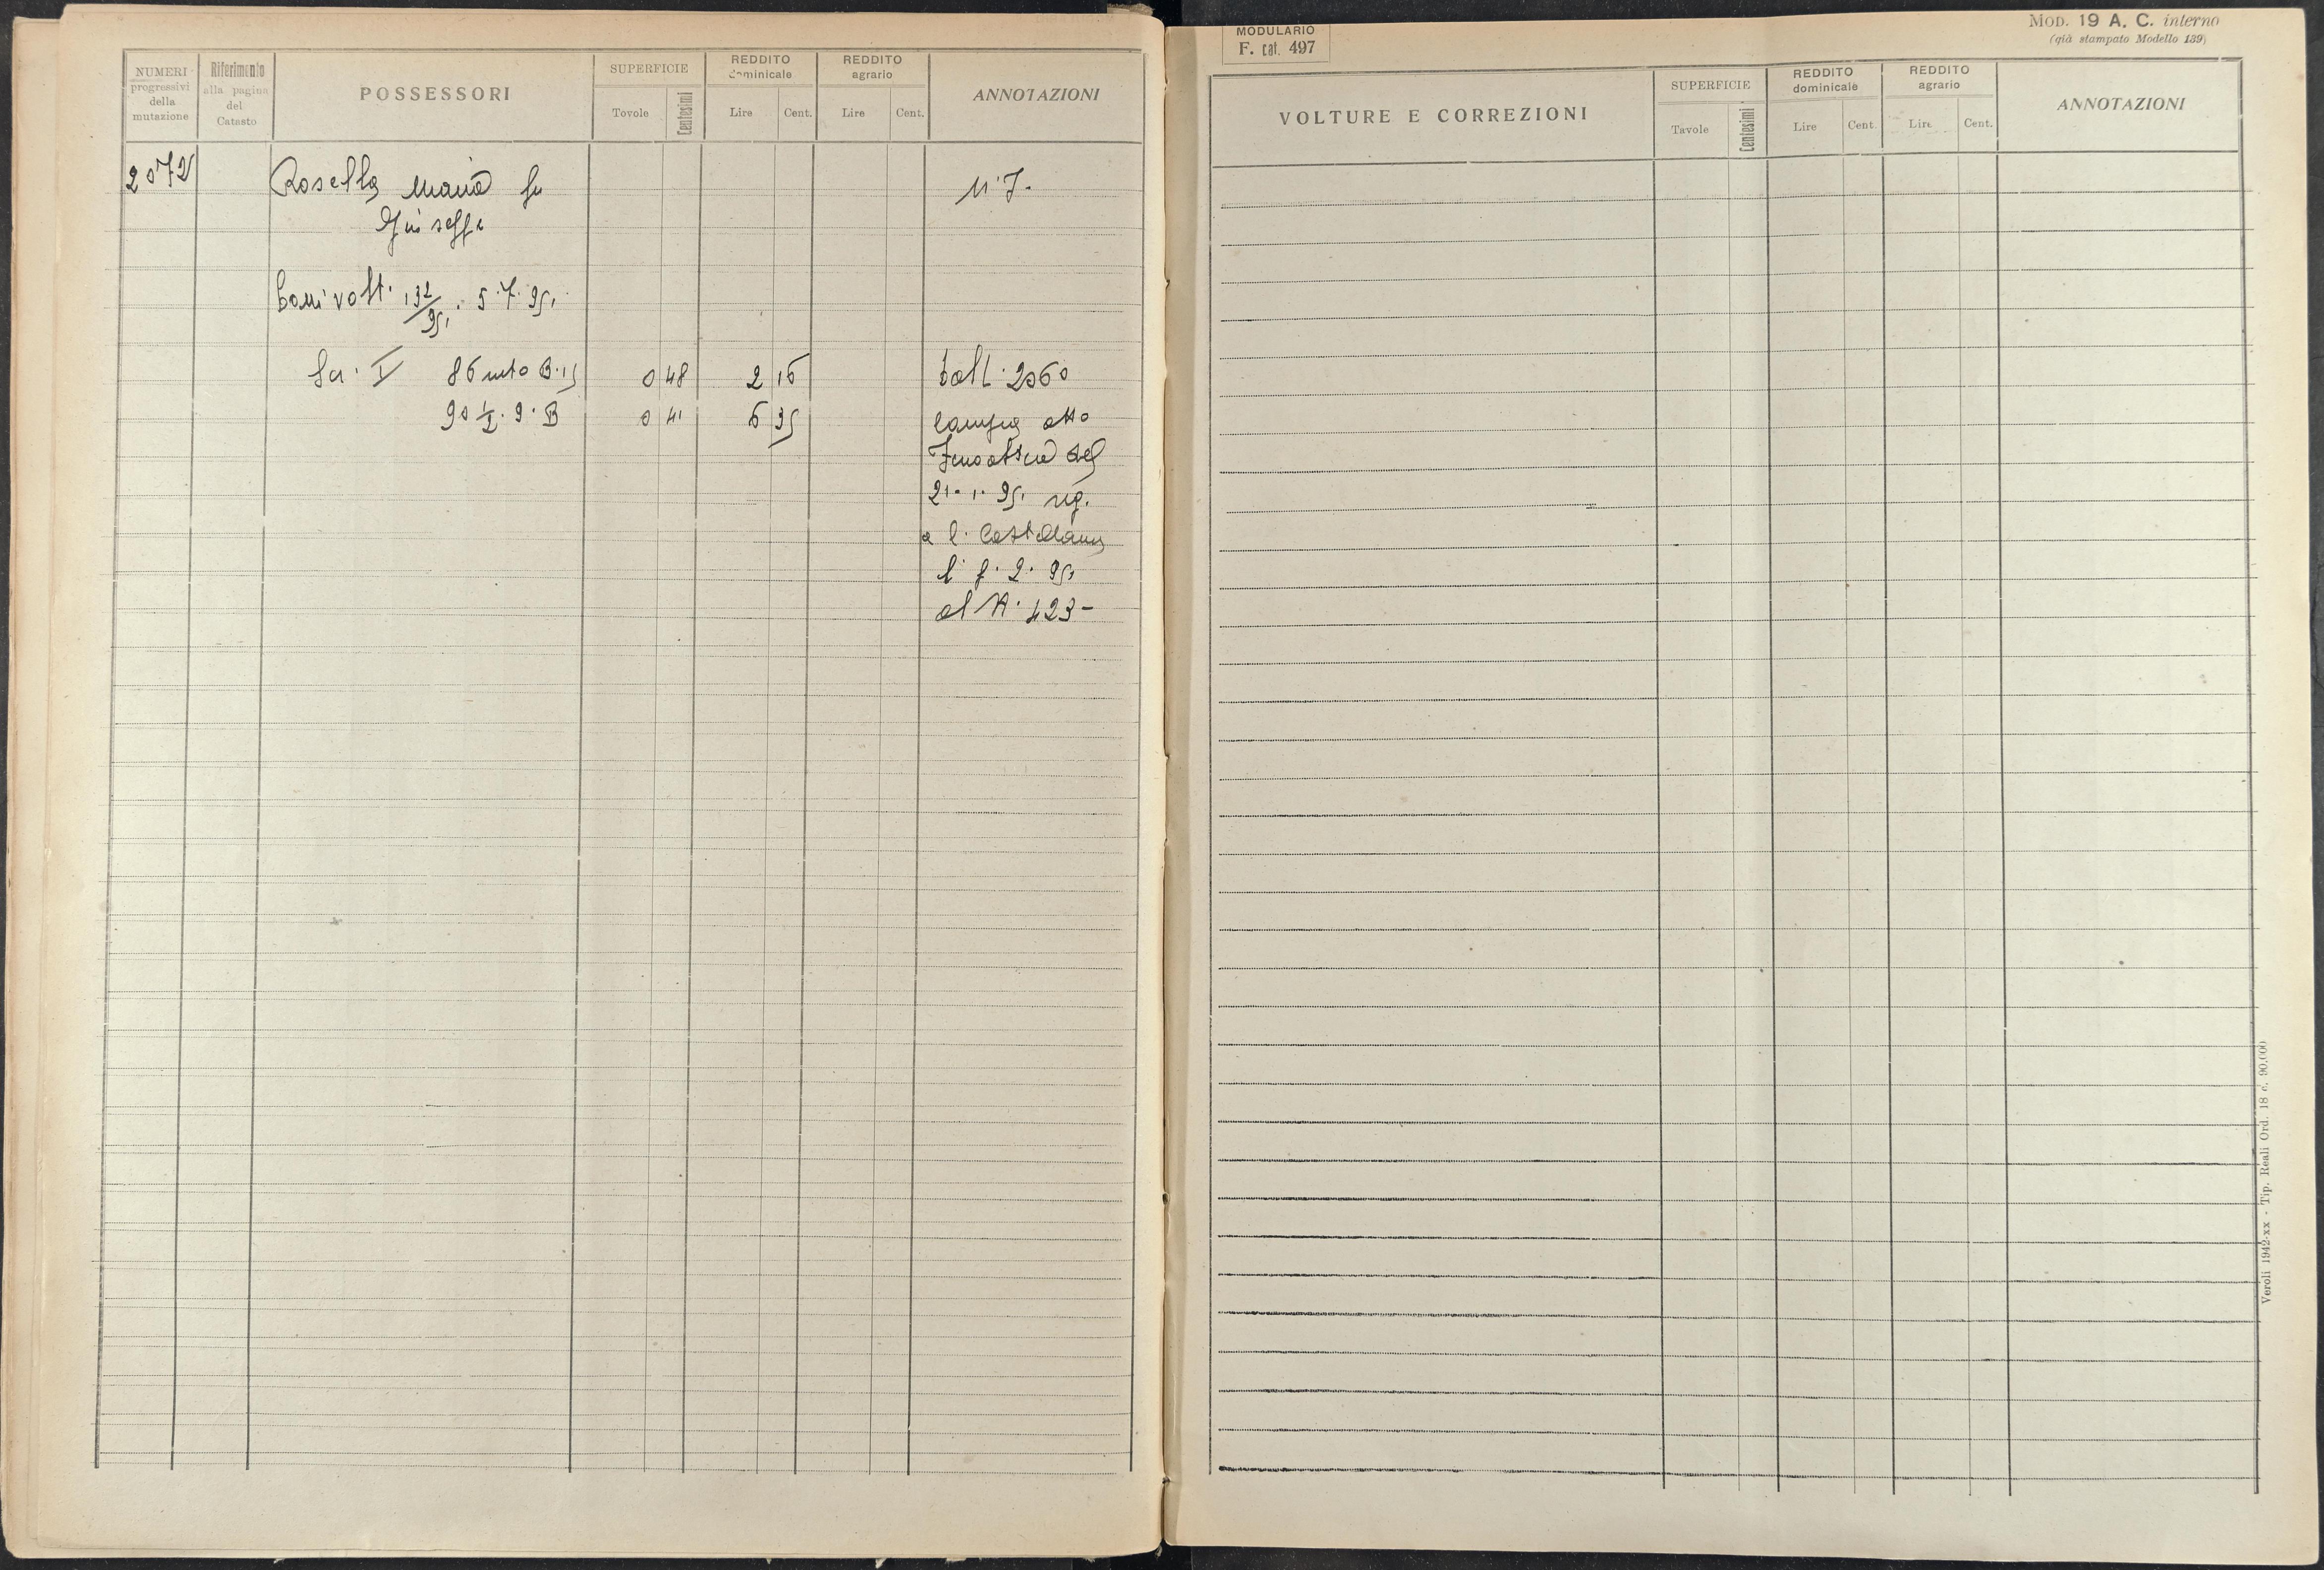 NUMERI progressivi della mutazione
Riferimento alla pagina del Catasto
POSSESSORI
SUPERFICIE
Tavole
Centesimi
REDDITO dominicale
Lire
Cent.
REDDITO agrario
Lire
Cent.
ANNOTAZIONI
2072
Rosella Maria fu
Giuseppe
volt. 132/951. 5.7.951.
I 86 B.15 0 48 2 16
90 9. B 0 41 6 95
2060
atto
del
21.1.951 reg.
a C. Castellana
2. 951
al N. 423-
MODULARIO
F. cat. 497
MOD. 19 A. C. interno
(già stampato Modello 139)
VOLTURE E CORREZIONI
SUPERFICIE
Tavole
Centesimi
REDDITO dominicale
Lire
Cent.
REDDITO agrario
Lire
Cent.
ANNOTAZIONI
Veroli 1942-xx - Tip. Reali Ord. 18 c. 90,000